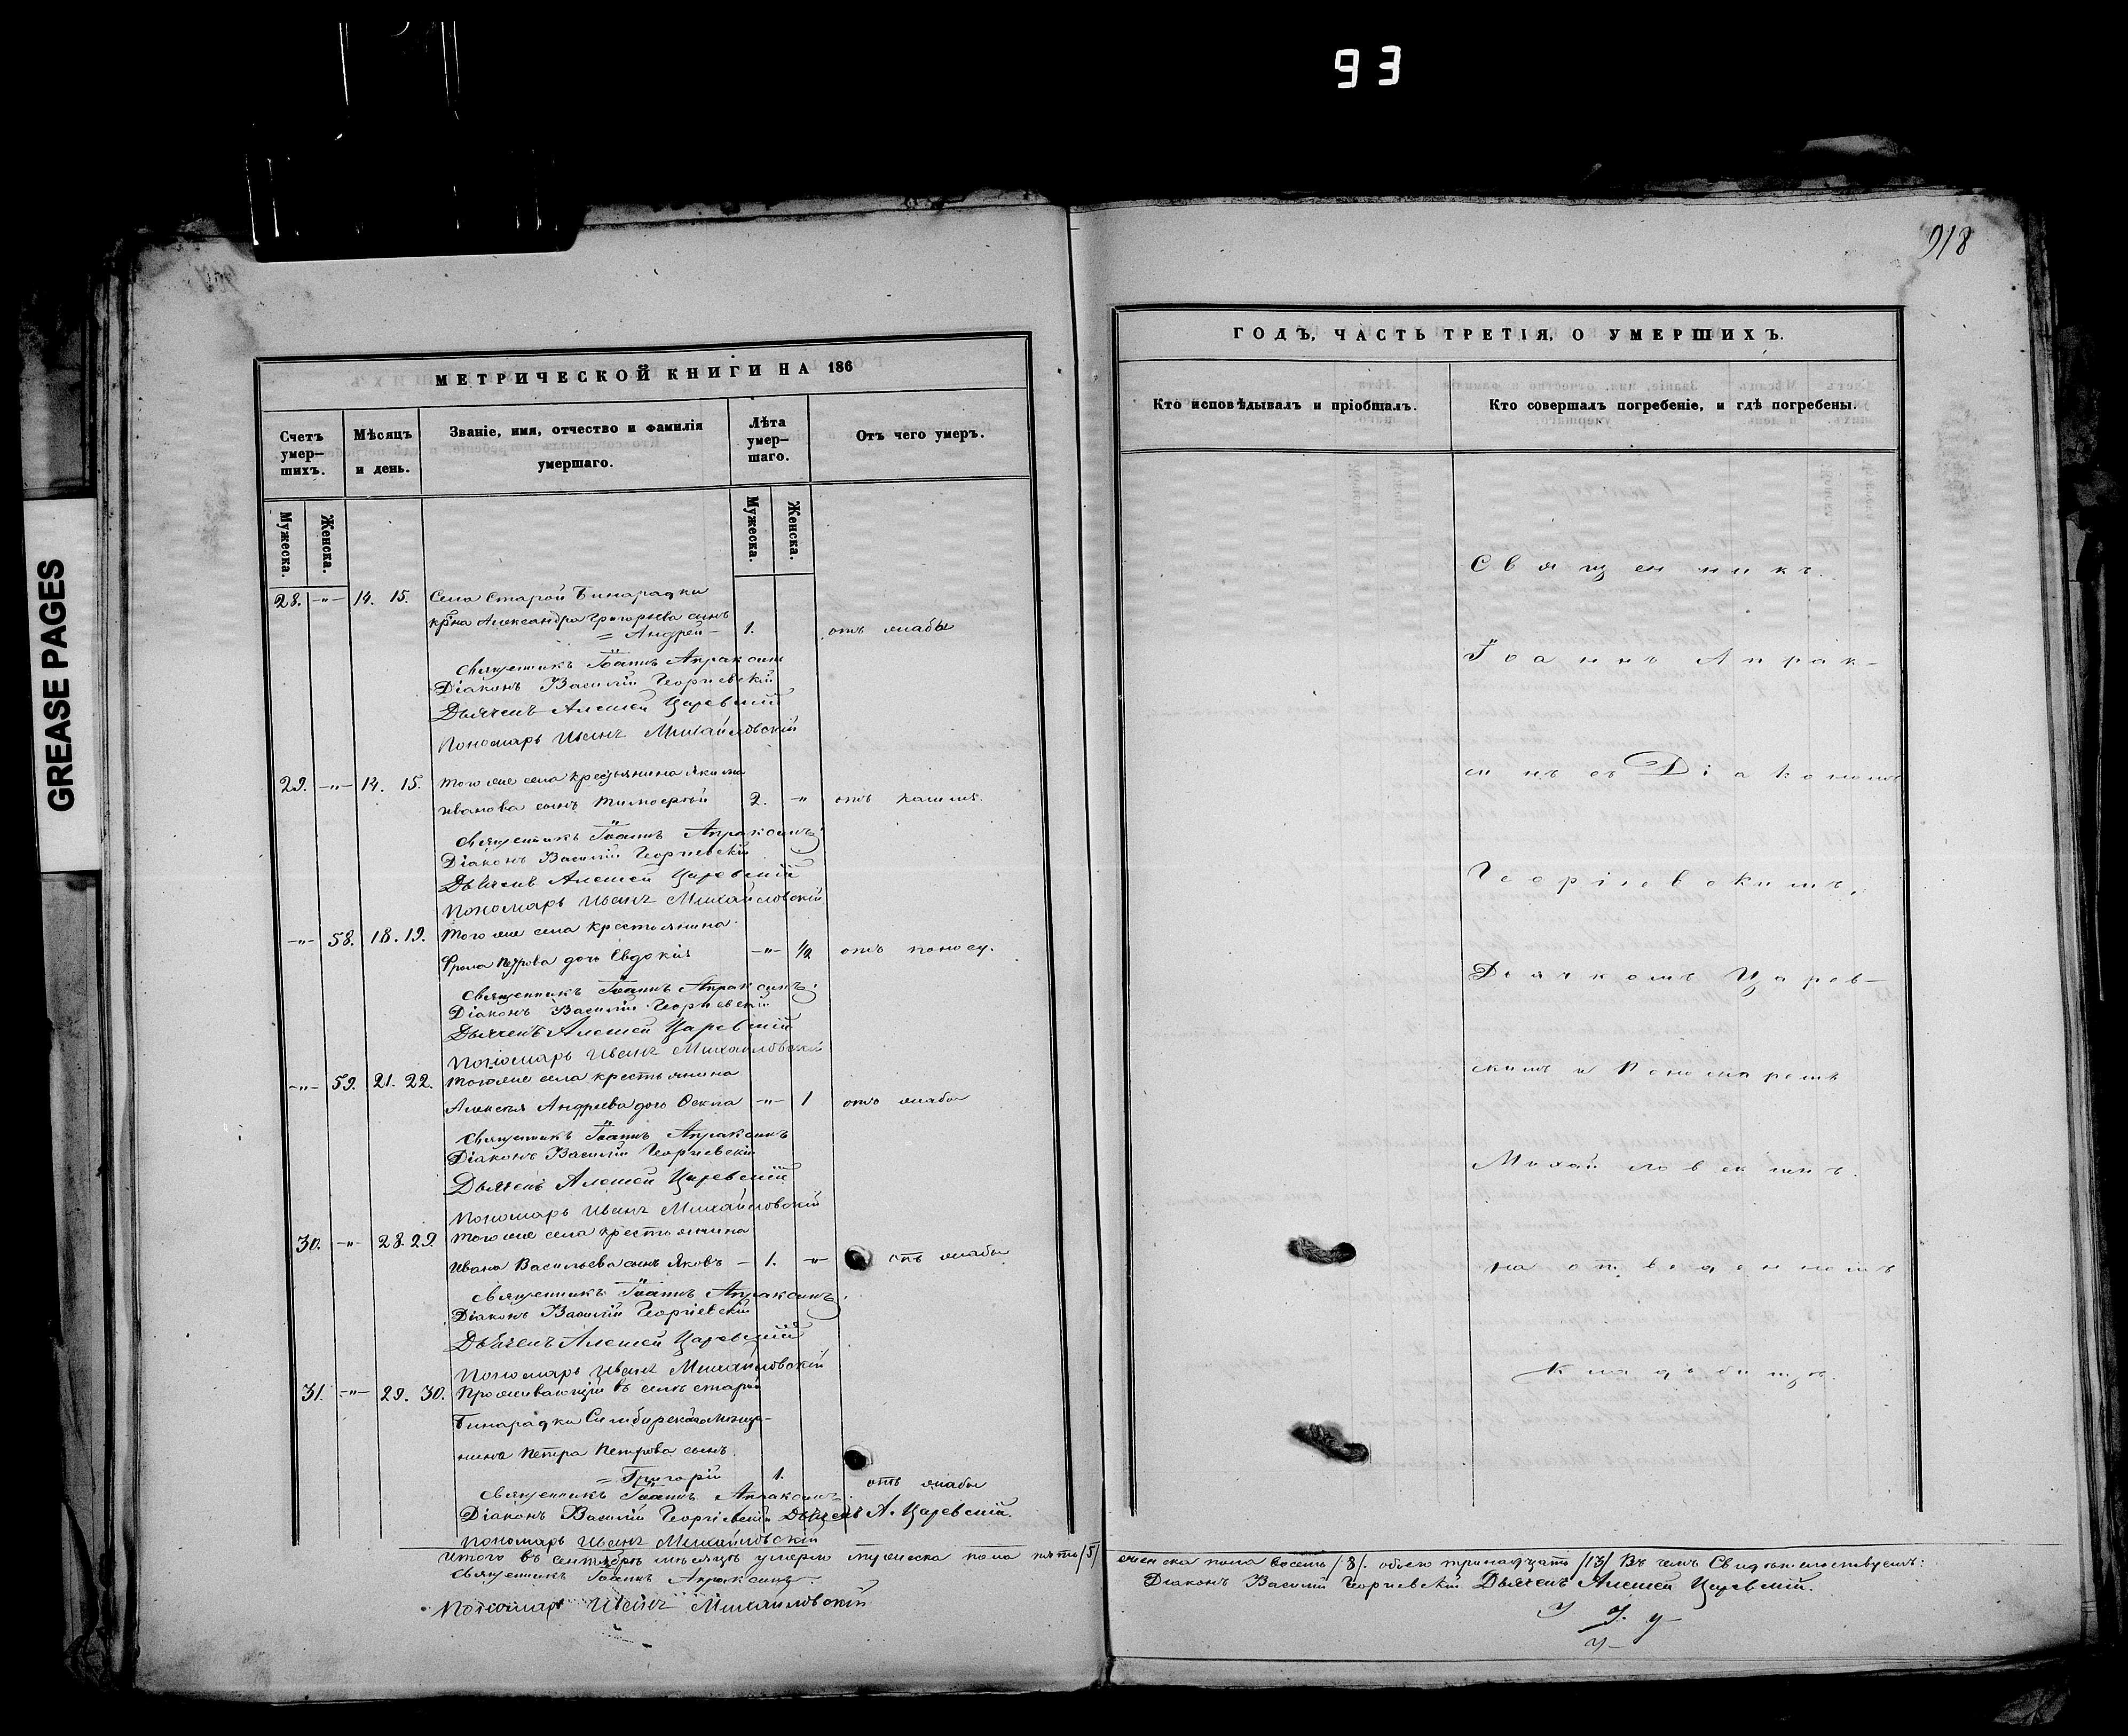 93
GREASE PAGES
918
МЕТРИЧЕСКОЙ КНИГИ НА 186
Счетъ умер–шихъ.
Мѣсяцъ и день.
Званіе, имя, отчество и фамилія умершаго.
Лѣта умер–шаго.
Отъ чего умеръ.
Мужеска.
Женска.
Мужеска.
Женска.
28. -"- 14. 15. Села Старой Бинарадки
кр-на Александра Григорьева сынъ
= Андрей – 1. отъ слабы
Священникъ Іоаннъ Апраксинъ
Діаконъ Василій Георгіевскій
Дьячекъ Алексей Царевскій
Пономарь Иванъ Михайловскій
29. -"- 14. 15. Того же села крестьянина Якима
Иванова сынъ Тимоѳей 2. " отъ кашля.
Священникъ Іоаннъ Апраксинъ
Діаконъ Василій Георгіевскій
Дьячекъ Алексей Царевскій
Пономарь Иванъ Михайловскій
-"- 58. 18. 19. Того же села крестьянина
Фрола Петрова дочь Евдокія -"- 1/2 отъ поносу.
Священникъ Іоаннъ Апраксинъ
Діаконъ Василій Георгіевскій
Дьячекъ Алексей Царевскій
Пономарь Иванъ Михайловскій
-"- 59. 21. 22. Того же села крестьянина
Алексея Андреева дочь -"- 1 отъ слабы
Священникъ Іоаннъ Апраксинъ
Діаконъ Василій Георгіевскій
Дьячекъ Алексей Царевскій
Пономарь Иванъ Михайловскій
30. -"- 28. 29. Того же села крестьянина
Ивана Васильева сынъ Яковъ – 1. -"- отъ слабы
Священникъ Іоаннъ Апраксинъ
Діаконъ Василій Георгіевскій
Дьячекъ Алексей Царевскій
Пономарь Иванъ Михайловскій
31. -"- 29. 30. Проживающій въ селѣ старой
Бинарадки Симбирскаго мѣща-
нина Петра Петрова сынъ
= Григорій 1. отъ слабы
Священникъ Іоаннъ Апраксинъ
Діаконъ Василій Георгіевскій Дьячекъ А. Царевскій.
Пономарь Иванъ Михайловскій
Итого въ сентябрѣ мѣсяцѣ умерло мужеска пола пять /5/
Священникъ Іоаннъ Апраксинъ.
Пономарь Иванъ Михайловскій
ГОДЪ, ЧАСТЬ ТРЕТІЯ, О УМЕРШИХЪ.
Кто исповѣдывалъ и пріобщалъ.
Кто совершалъ погребеніе, и гдѣ погребены.
Священникъ
Іоаннъ Апрак-
синъ съ Діакономъ
Георгіевскимъ,
Дьячкомъ Царев-
скимъ и Пономаремъ
Михайловскимъ.
на отведенномъ
кладбищѣ.
женска пола восемь /8/. обоего тринадцать /13/ Въ чемъ Свидѣтельствуемъ:
Діаконъ Василій Георгіевскій Дьячекъ Алексей Царевскій.